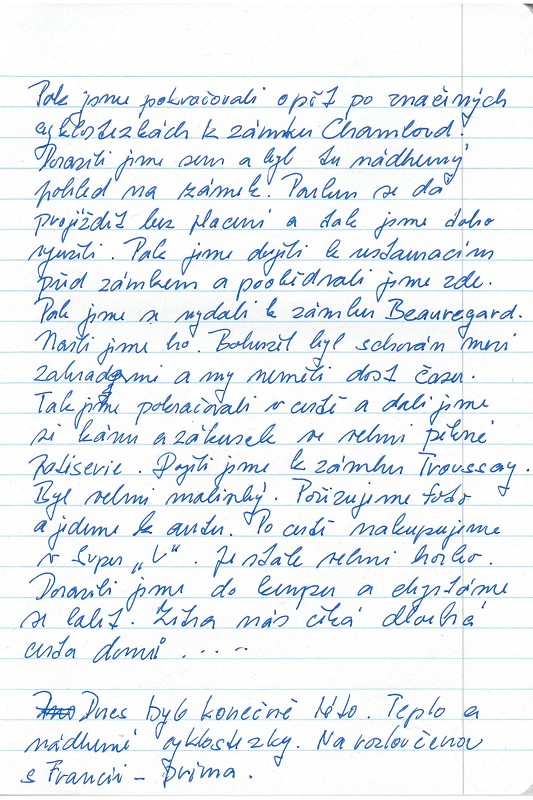 Pak jsme pokračovali opět po značených
cyklostezkách k zámku Chambord.
Dorazili jsme sem a byl tu nádherný
pohled na zámek. Parkem se dá
projíždět bez placení a tak jsme toho
využili. Pak jsme dojeli k restauracím
před zámkem a poobědvali jsme zde.
Pak jsme se vydali k zámku Beauregard.
Našli jsme ho. Bohužel byl schován mezi
zahradami a my neměli dost času.
Tak jsme pokračovali v cestě a dali jsme
si kávu a zákusek ve velmi pěkné
Patiserie. Dojeli jsme k zámku Troussay.
Byl velmi malinký. Pořizujeme foto
a jedeme k autu. Po cestě nakupujeme
v Super „U“. Je stále velmi horko.
Dorazili jsme do kempu a chystáme
se balit. Zítra nás čeká dlouhá
cesta domů ....
Dnes bylo konečně léto. Teplo a
nádherné cyklostezky. Na rozloučenou
s Francií - prima.